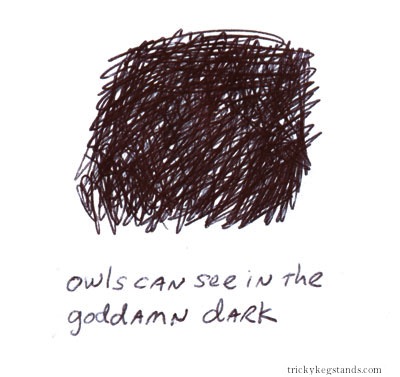 owls can see in the
goddamn dark
trickykegstands.com